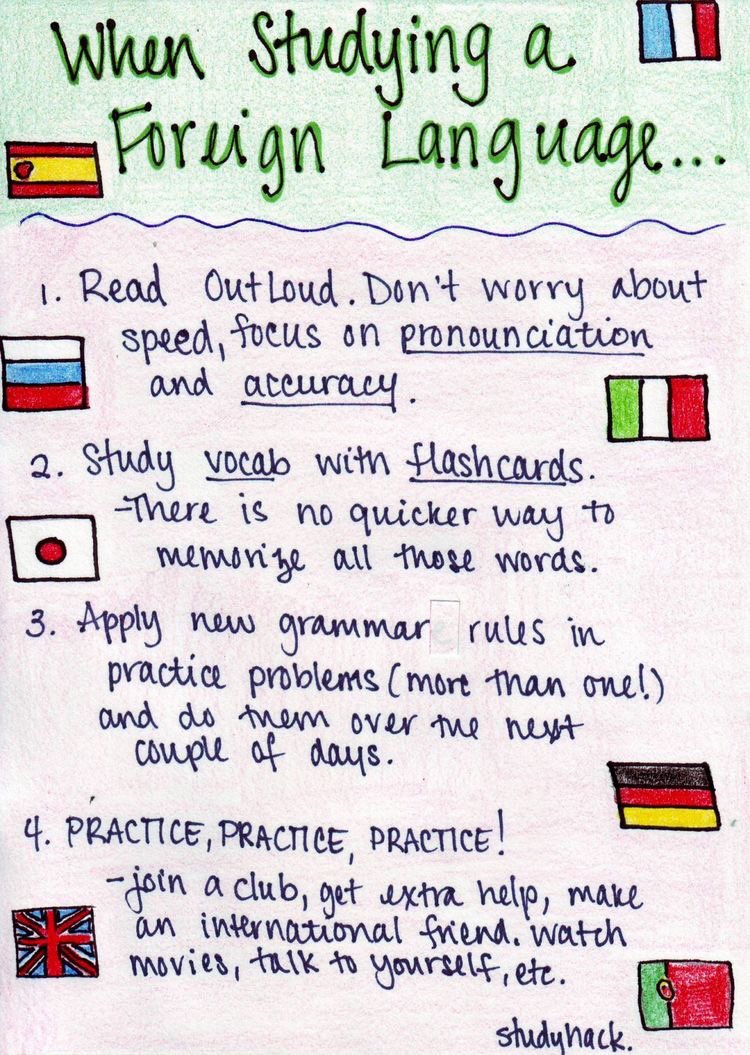 When Studying a
Foreign Language...
1. Read Out Loud. Don't worry about
speed, focus on pronounciation
and accuracy.
2. Study vocab with flashcards.
-There is no quicker way to
memorize all those words.
3. Apply new grammar rules in
practice problems (more than one!)
and do them over the next
couple of days.
4. PRACTICE, PRACTICE, PRACTICE!
-join a club, get extra help, make
an international friend. watch
movies, talk to yourself, etc.
studyhack.